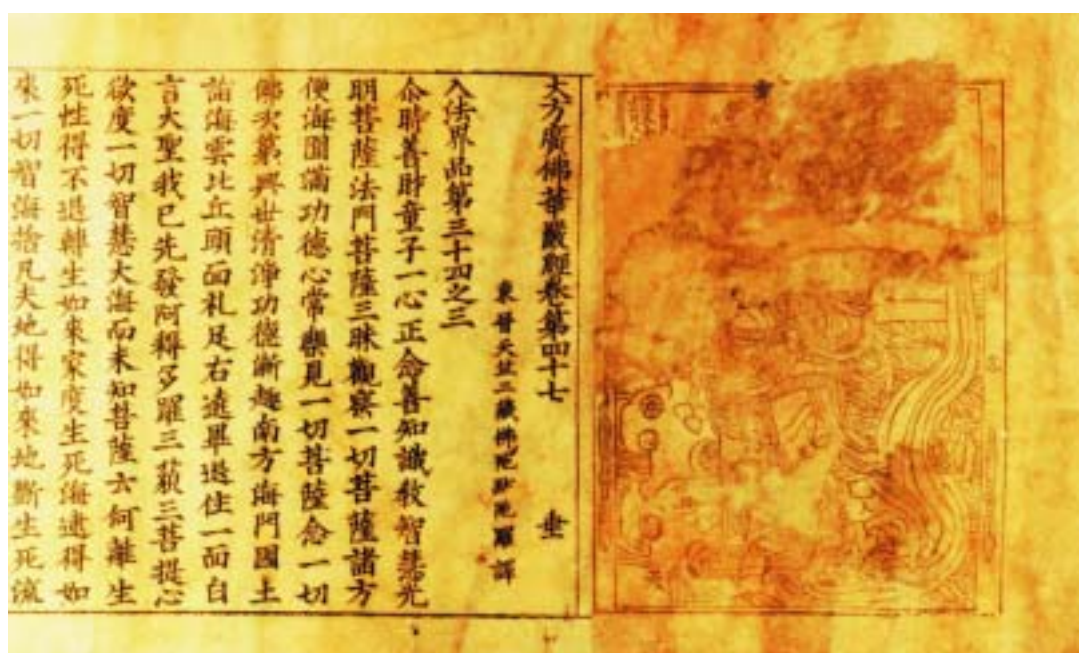 大方廣佛華嚴經卷第四十七 垂
東晉天竺三藏佛陁跋陁羅譯
入法界品第三十四之三
尒時善財童子一心正念善知識教智慧光
明菩薩法門菩薩三昧觀察一切菩薩諸方
便海圓滿功德心常樂見一切菩薩念一切
佛次第興世清淨功德漸趣南方海門國土
詣海雲比丘頭面礼足右遶畢退住一面白
言大聖我已先發阿耨多羅三藐三菩提心
欲度一切智慧大海而未知菩薩云何離生
死性得不退轉生如來家度生死海逮得如
來一切智海捨凡夫地得如來地斷生死流